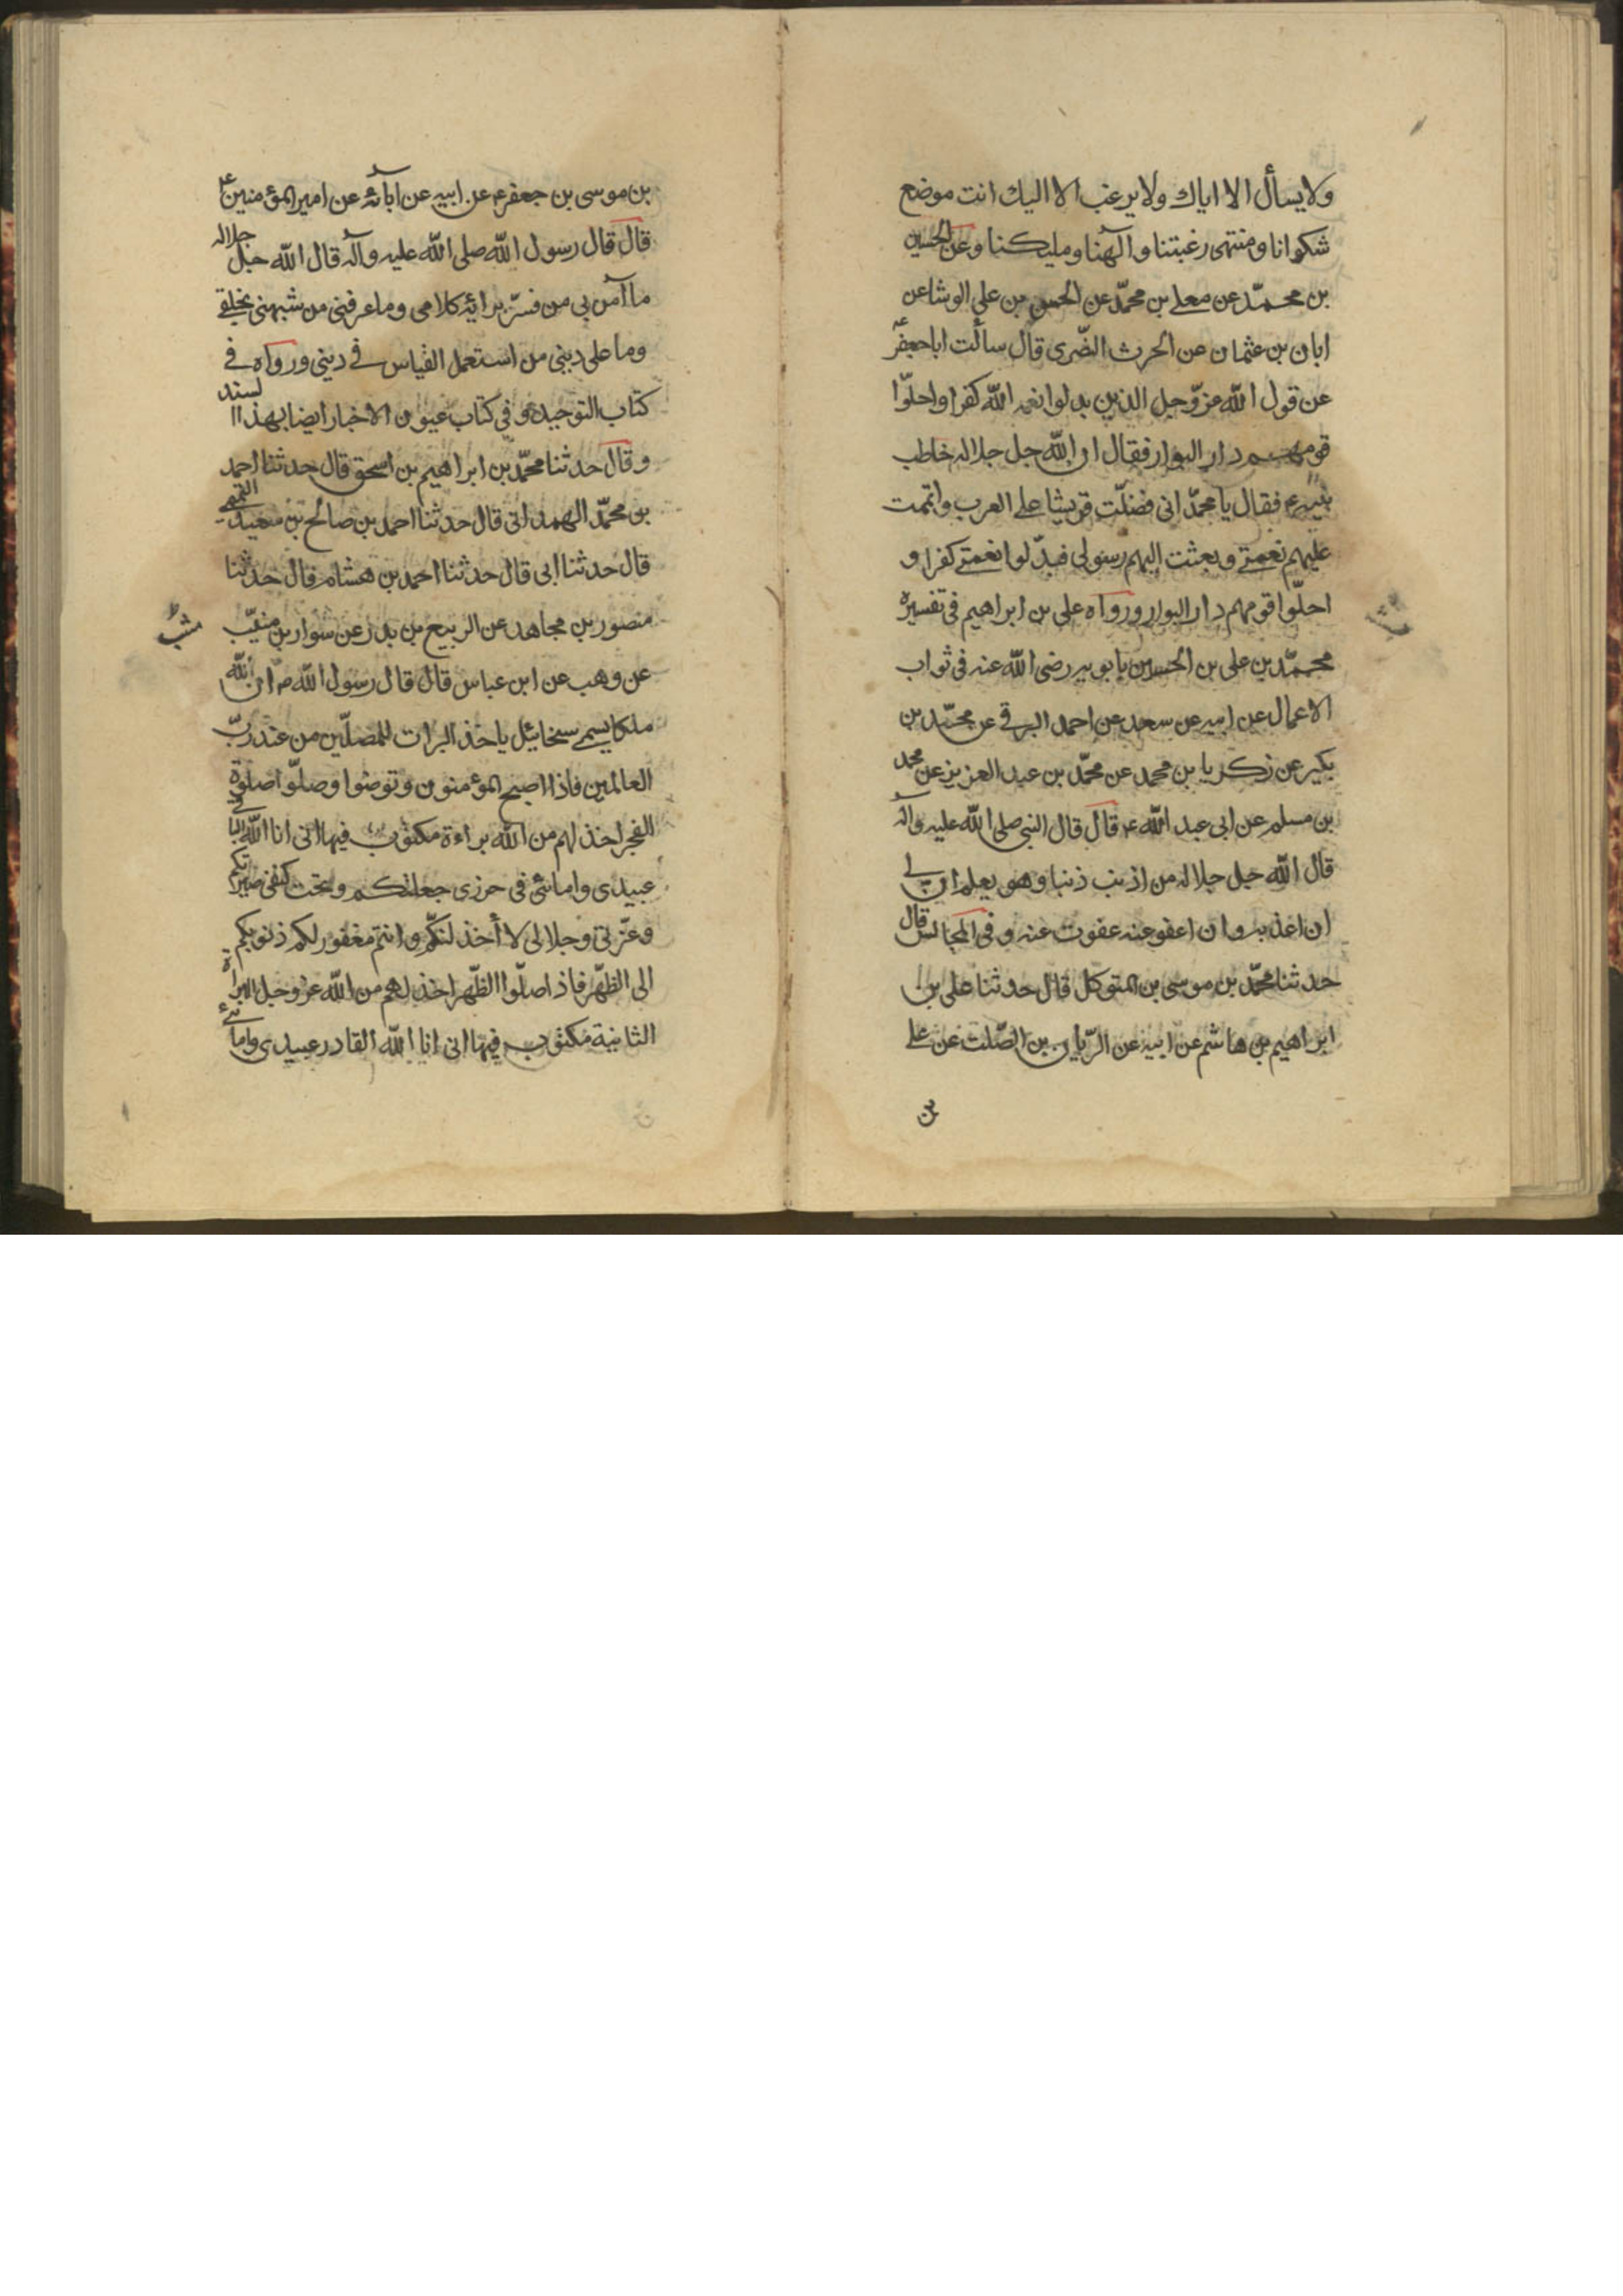 ولا يسأل الا اياك ولا يرغب الا اليك انت موضع
شكوانا ومنتهى رغبتنا وآلهنا ومليكنا وعن الحسين
بن محمّد عن معلى بن محمّد عن الحسن بن على الوشا عن
ابان بن عثمان عن الحرث النصّرى قال سألت ابا جعفر ع
عن قول الله عزّوجل الذين بدلوا نعمه الله كفرا واحلّوا
قومهم دار البوار فقال ان الله جل جلاله خاطب
نبيه ع فقال يا محمّد انى فضلّت قريشا على العرب واتممت
عليهم نعمتى وبعثت اليهم رسولى فبدّلوا نعمتى كفرا و
احلّوا قومهم دار البوار ورواه على بن ابراهيم فى تفسيره
محمّد بن على بن الحسين بابويه رضى الله عنه فى ثواب
الاعمال عن ابيه عن سعد عن احمد البرقى عن محمّد بن
بكير عن زكريا بن محمد عن محمّد بن عبد العزيز عن محمد
بن مسلم عن ابى عبد الله ع قال قال النبى صلى الله عليه وآله
قال الله جل جلاله من اذنب ذنبا وهو يعلم ان لى
ان اعذبه وان اعفو عنه عفوت عنه وفى المجالس قال
حدثنا محمّد بن موسى بن المتوكل قال حدثنا على بن
ابراهيم بن هاشم عن ابيه عن الرّيان بن الصّلت عن على
بن
بن موسى بن جعفر ع عن ابيه عن ابآئه عن امير المؤمنين ع
قال قال رسول الله صلى الله عليه وآله قال الله جل جلاله
ما آمن بى من فسّر برائه كلامى وما عرفنى من شبهنى بخلقى
وما على دينى من استعمل القياس فى دينى ورواه فى
كتاب التوحيد وفى كتاب عيون الاخبار ايضا بهذا السند
وقال حدثنا محمّد بن ابراهيم بن اسحق قال حدثنا احمد
بن محمّد الهمدانى قال حدثنا احمد بن صالح بن سعيد التميمى
قال حدثنا ابى قال حدثنا احمد بن هشام قال حدثنا
منصور بن مجاهد عن الربيع بن بدر عن سوار بن منيّب
عن وهب عن ابن عباس قال قال رسول الله ص ان لله
ملكا يسمى سخائيل ياخذ البرات للمصلّين من عند ربّ
العالمين فاذا اصبح المؤمنون وتوضوا وصلّوا صلوة
الفجر اخذ لهم من الله براءة مكتوب فيها انى انا الله الباقى
عبيدى وامائى فى حرزى جعلتكم وتحت كنفى صيرتكم
وعزّتى وجلالى لا أخذلنكم وانتم مغفور لكم ذنوبكم
الى الظهر فاذا صلّوا الظّهر اخذ لهم من الله عز وجل البراة
الثانية مكتوب فيها انى انا الله القادر عبيدى وامائى